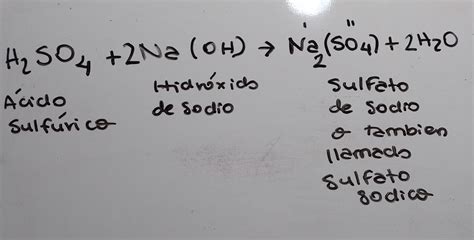 H₂SO₄ + 2Na(OH) → Na₂(SO₄) + 2H₂O
Ácido
Sulfúrico
Hidróxido
de Sodio
Sulfato
de Sodio
o tambien
llamado
Sulfato
Sodico